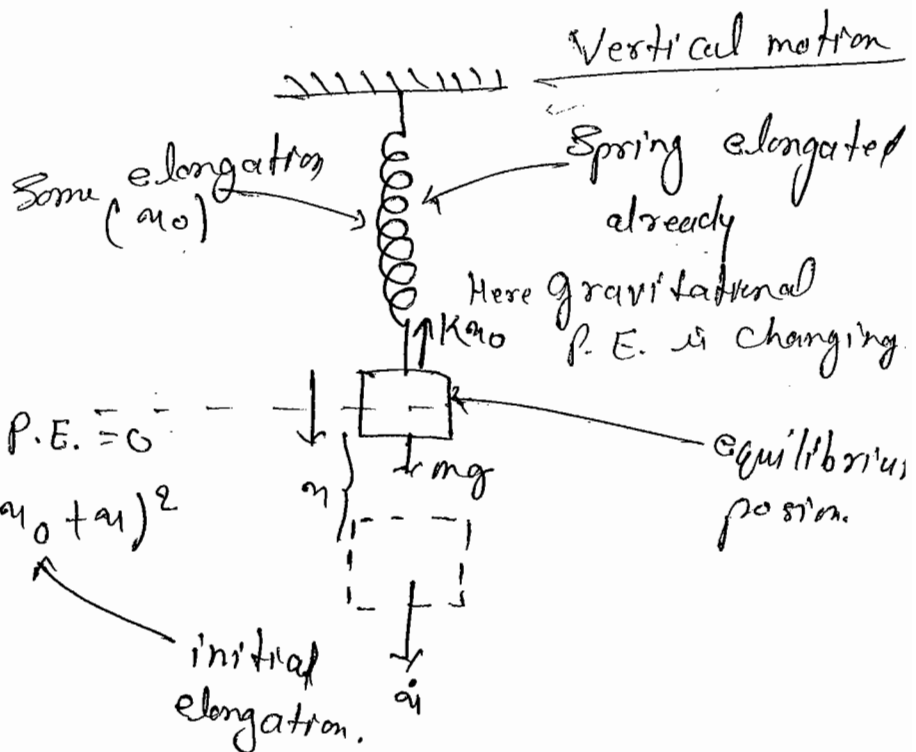 Vertical motion
Some elongation
(x0)
Spring elongated
already
Here gravitational
P. E. is changing.
Kx0
P.E. = 0
mg
x
equilibrius
posion.
x0 + x)²
initial
elongation.
ẋ